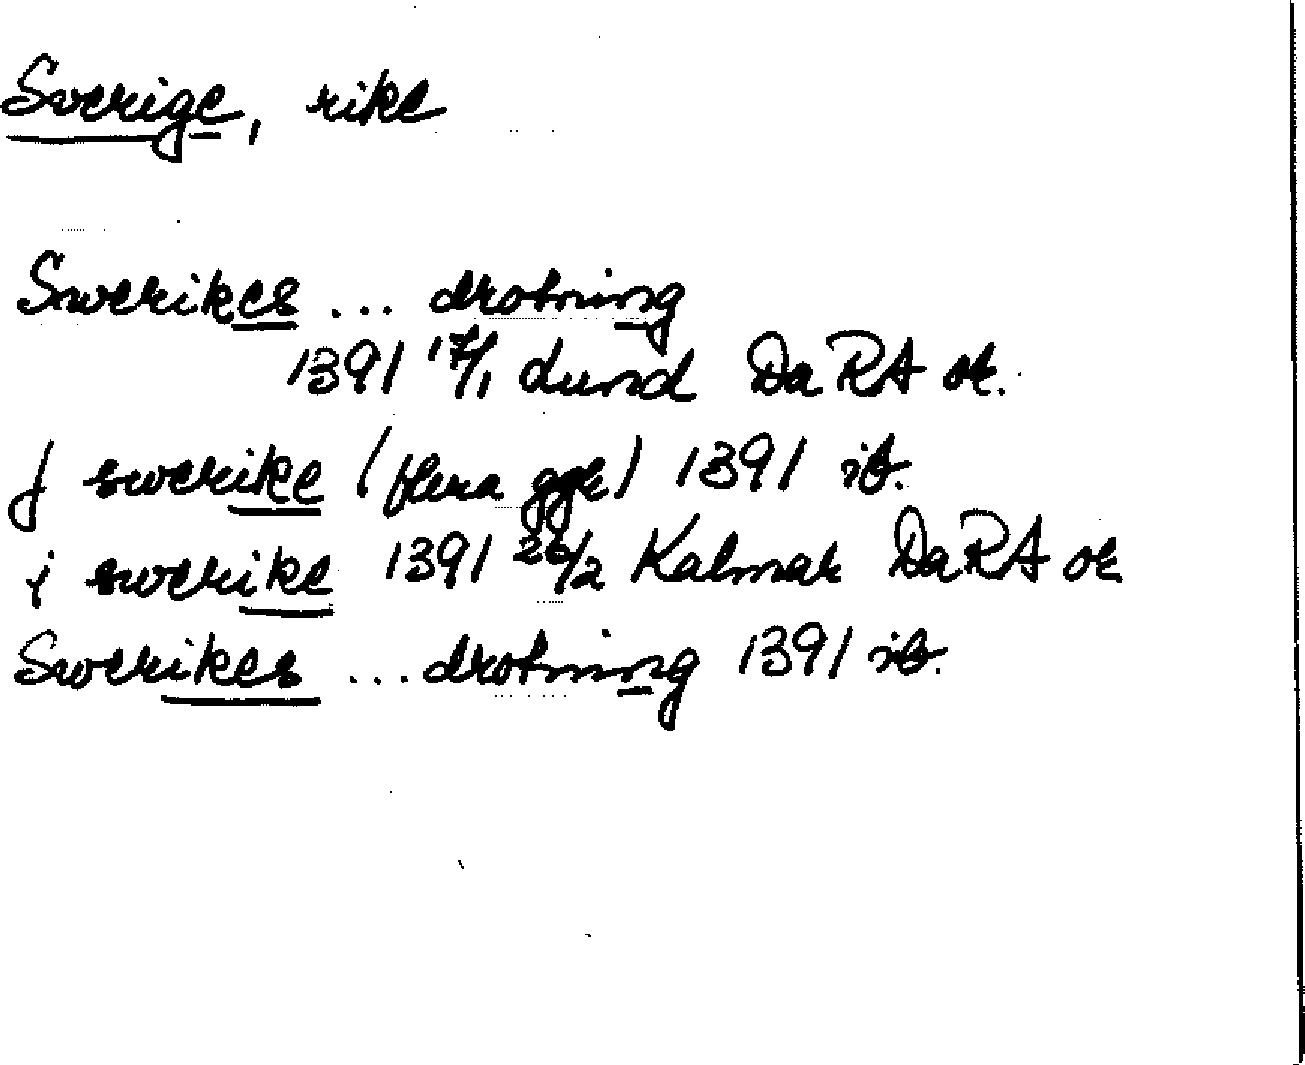 Sverige, rike
Swerikes ... drotning
1391 17/1 Lund DaRA or.
J swerike (flera ggr) 1391 ib.
i swerike 1391 26/2 Kalmar DaRA or
Swerikes ... drotning 1391 ib.